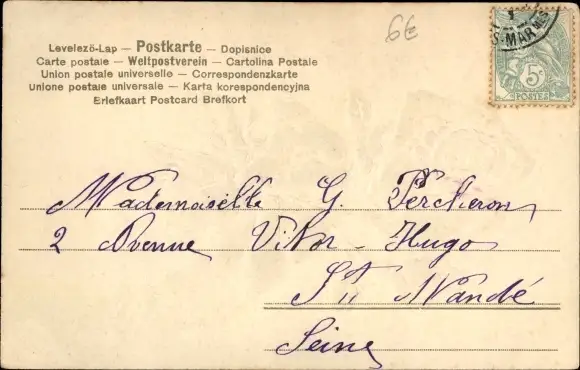 6€
Levelezö-Lap — Postkarte — Dopisnice
Carte postale — Weltpostverein — Cartolina Postale
Union postale universelle — Correspondenzkarte
Unione postale universale — Karta korespondencyjna
Briefkaart Postcard Brefkort
5c
POSTES
S-MARNE
Mademoiselle G. Percheron,
2 Avenue Victor-Hugo
St Mandé
Seine